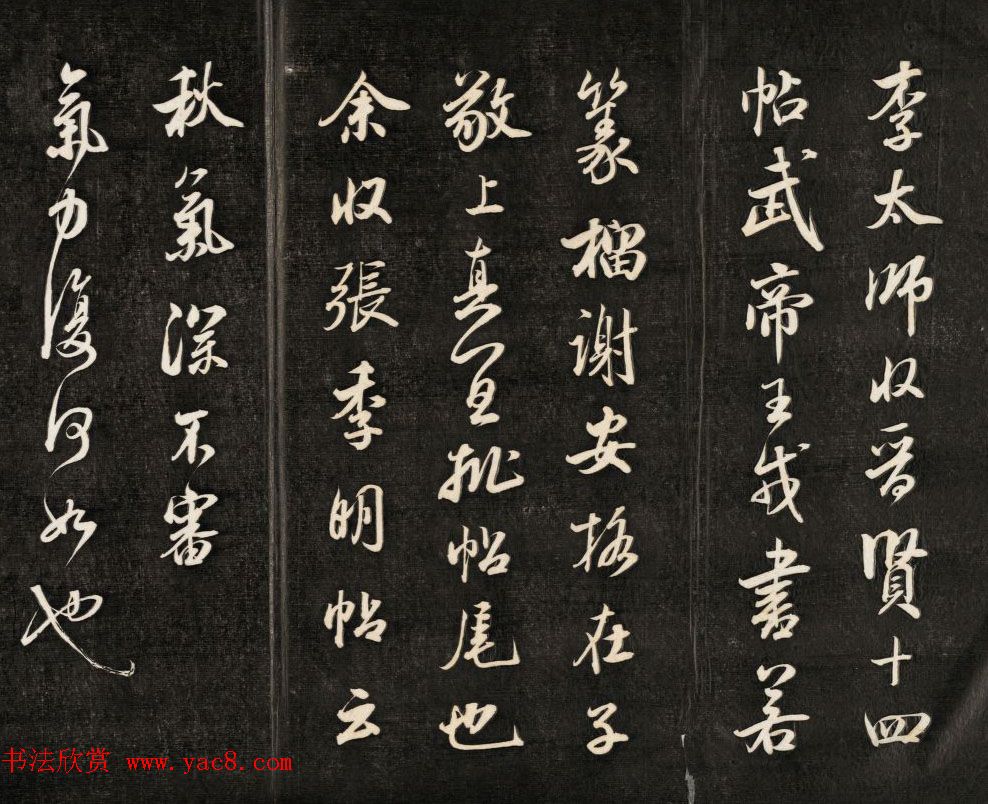 李太師收晉賢十四
帖武帝王戎書若
篆籀謝安格在子
敬上真宜批帖尾也
余收張季明帖云
秋氣深不審
氣力復何如也
书法欣赏 www.yac8.com